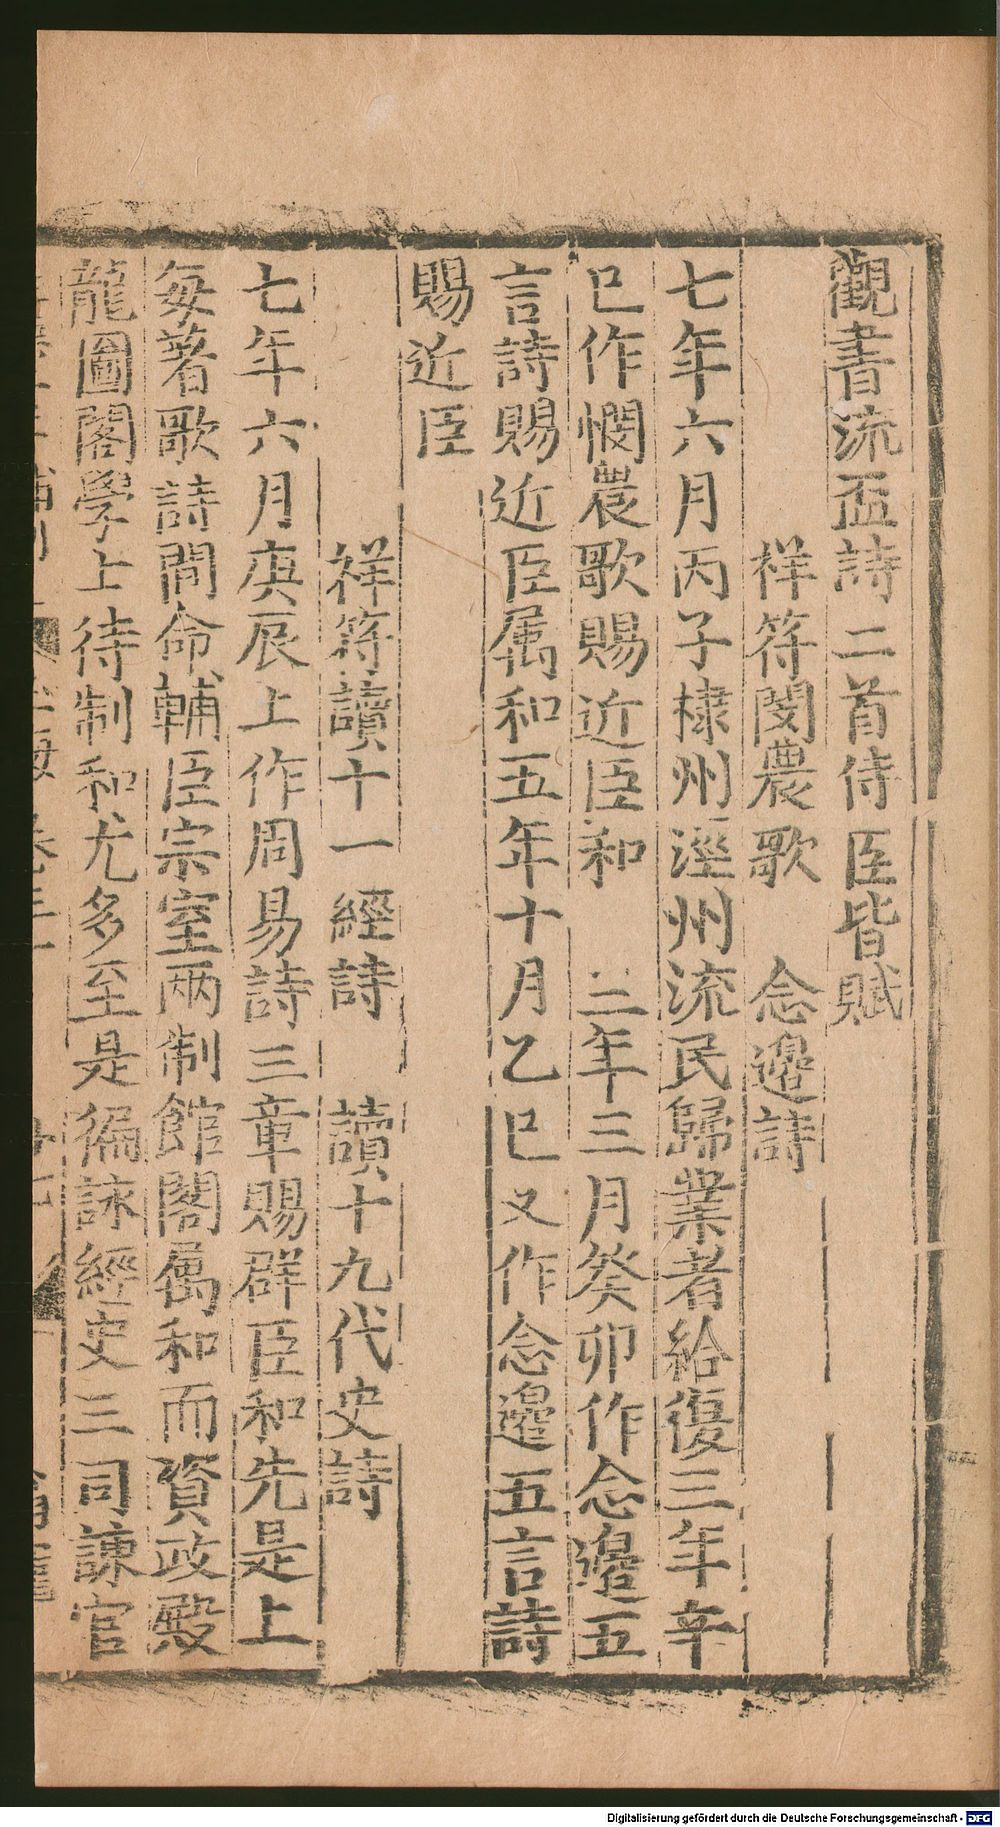 觀書流盃詩二首侍臣皆賦
祥符閔農歌 念邊詩
七年六月丙子棣州涇州流民歸業者給復三年辛
巳作憫農歌賜近臣和 三年三月癸卯作念邊五
言詩賜近臣属和五年十月乙巳又作念邊五言詩
賜近臣
祥符讀十一經詩 讀十九代史詩
七年六月庚辰上作周易詩三章賜群臣和先是上
每著歌詩閒命輔臣宗室兩制館閣属和而資政殿
龍圖閣學上待制和尤多至是徧詠經史三司諫官
Digitalisierung gefördert durch die Deutsche Forschungsgemeinschaft - DFG